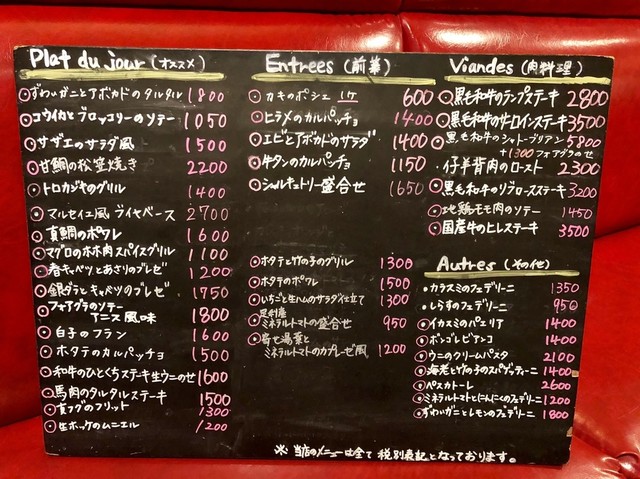 Plat du jour (オススメ)
ずわいガニとアボカドのタルタル 1800
コウイカとブロッコリーのソテー 1050
サザエのサラダ風 1500
甘鯛の松笠焼き 2200
トロカジキのグリル 1400
マルセイユ風ブイヤベース 2700
真鯛のポワレ 1600
マグロのホホ肉スパイスグリル 1100
春キャベツとあさりのブレゼ 1200
銀ダラとキャベツのブレゼ 1750
フォアグラのソテー
アニス風味 1800
白子のフラン 1600
ホタテのカルパッチョ 1500
和牛のひとくちステーキ生ウニのせ 1600
馬肉のタルタルステーキ 1500
真フグのフリット 1300
生ホッケのムニエル 1200
Entrees (前菜)
カキのポシェ 1ケ 600
ヒラメのカルパッチョ 1400
エビとアボカドのサラダ 1400
牛タンのカルパッチョ 1150
シャルキュトリー盛合せ 1650
ホタテと竹の子のグリル 1300
ホタテのポワレ 1500
いちごと生ハムのサラダ仕立て 1300
足利産
ミネラルトマトの盛合せ 950
寄せ湯葉と
ミネラルトマトのカプレーゼ風 1200
Viandes (肉料理)
黒毛和牛のランプステーキ 2800
黒毛和牛のサーロインステーキ 3500
黒毛和牛のシャトーブリアン 5800
+1300フォアグラのせ
仔羊背肉のロースト 2300
黒毛和牛のリブロースステーキ 3200
地鶏モモ肉のソテー 1450
国産牛のヒレステーキ 3500
Autres (その他)
カラスミのフェデリーニ 1350
しらすのフェデリーニ 950
イカスミのパエリア 1400
ボンゴレビアンコ 1400
ウニのクリームパスタ 2100
海老と竹の子のスパゲッティーニ 1400
ペスカトーレ 2600
ミネラルトマトとにんにくのフェデリーニ 1200
ずわいガニとレモンのフェデリーニ 1800
※ 当店のメニューは全て 税別表記となっております。